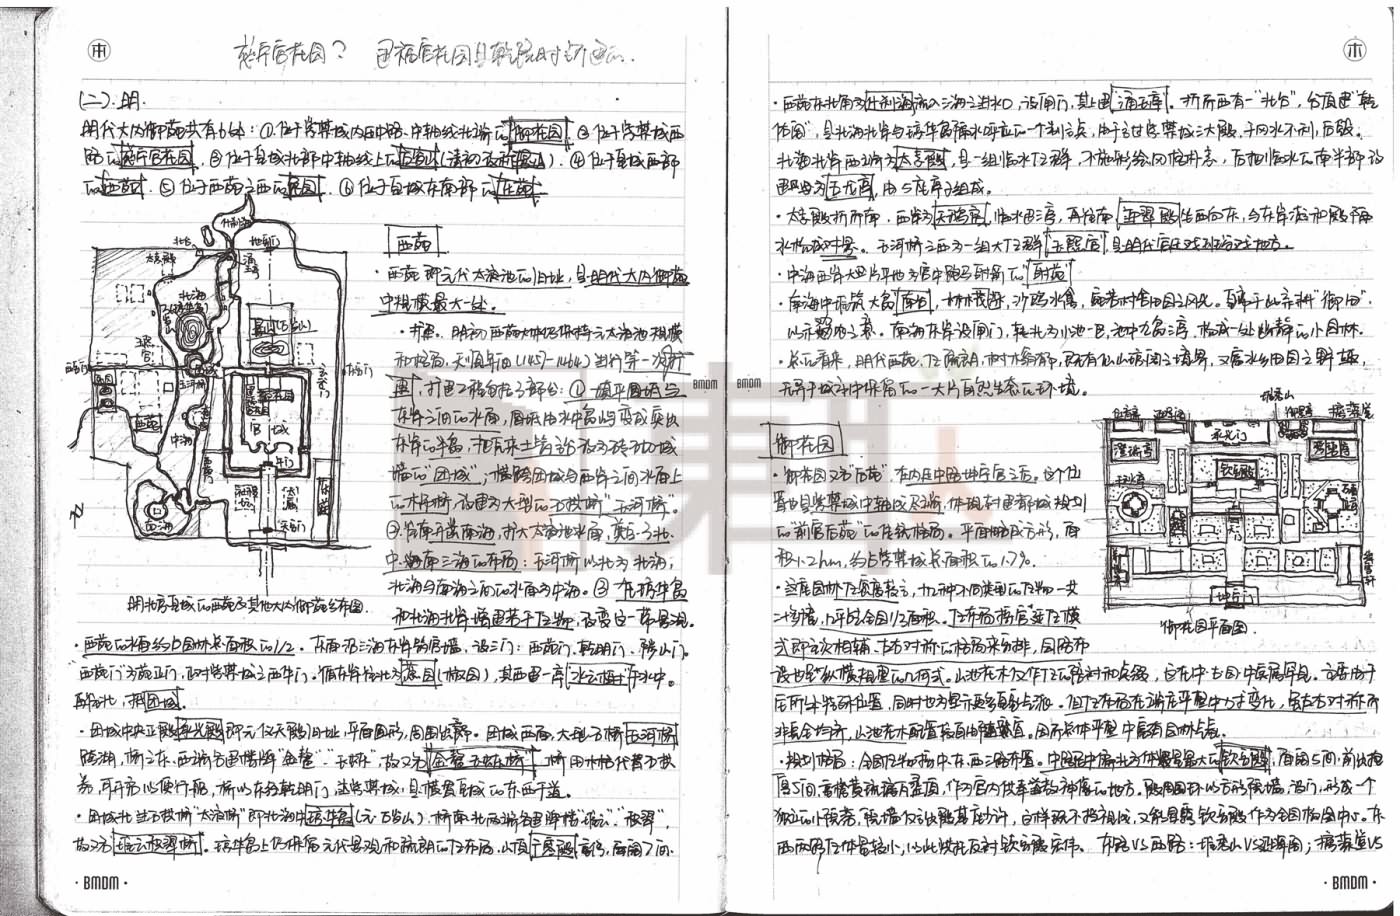 慈宁宫花园? 建福宫花园是乾隆时所建的.
(二).明.
明代大内御苑共有6处:①.位于紫禁城内廷中路.中轴线北端的御花园 ②位于紫禁城西
路的慈宁宫花园.③位于皇城北部中轴线上的万岁山(清初改称景山).④位于皇城西部
的西苑.⑤位于西苑之西的兔园.⑥位于皇城东南部的东苑
西苑
·西苑即元代太液池的旧址,是明代大内御苑
中规模最大一处。
明初西苑大体仍保持元太液池规模
和格局.天顺年间(1457-1464)进行第一次扩
建,扩建工程包括三部分:①填平圆坻与
东岸之间的水面,圆坻由水中岛屿变成突出
东岸的半岛,把原来土筑高台改为砖砌城
墙的"团城",横跨团城与西岸之间水面上
的木吊桥,改建为大型的石拱桥"玉河桥"。
②.往南开凿南海,扩大太液池水面,奠定了北.
中.南三海的布局:玉河桥以北为北海,
北海与南海之间的水面为中海。③在琼华岛
和北海北岸增建若干建筑,改变这一带景观.
明北京皇城的西苑及其他大内御苑分布图.
·西苑的水面约占园林总面积的1/2。东面沿三海东岸筑宫墙,设三门:西苑门、乾明门、陟山门。
"西苑门"为苑正门,正对紫禁城之西华门。循东岸往北为蕉园(椒园),其西建一亭水云榭于水中。
再往北,抵团城。
·团城中央正殿承光殿即元仪天殿旧址,平面圆形,周围出廊。团城西面,大型石桥玉河桥
跨湖,桥之东、西端各建牌楼"金鳌"、"玉蝀",故又名金鳌玉蝀桥。桥中用木枋代替石拱
券,可开启以便行船,桥以东经乾明门,达紫禁城,是横贯皇城的东西干道。
·团城北些石拱桥"太液桥"即北海中琼华岛(元万岁山).桥南北两端各建牌楼"堆云"、"积翠",
故又名堆云积翠桥。琼华岛上仍保留元代景观和疏朗的建筑布局.山顶广寒殿,面阔7间.
·西苑东北角为什刹海流入三海之进水口,设闸门,其上建涌玉亭。折而西有一"北台",台顶建"乾
佑阁",是北海北岸与琼华岛隔水呼应的一个制高点,由于过紫禁城三大殿,于风水不利,后毁。
北海北岸西端为太素殿,是一组临水建筑群,不施彩绘风格朴素,后把临水的南半部改
建更名为五龙亭,由5座亭子组成。
·太素殿折而南.西岸为天鹅房,临水建三亭,再往南迎翠殿坐西向东,与东岸凝和殿隔
水构成对景。玉河桥之西为一组大建筑群玉熙宫,是明代宫廷戏班演戏地方。
·中海西岸大片平地为宫中跑马射箭的"射苑"
·南海中堆筑大岛"南台",一林木茂密,沙鸥水禽,富若村舍田园之风光。皇帝于此亲耕"御田",
以示劝农之意。南海东岸设闸门,转北为小池一区,池中九岛三亭,构成一处幽静的小园林。
·总的看来,明代西苑,建筑疏朗,树木蓊郁,既有仙山琼阁之境界,又富水乡田园之野趣,
无异于城市中保留的一大片自然生态的环境。
御花园
·御花园又名"后苑",在内廷中路坤宁宫之后。这个位
置也是紫禁城中轴线尽端,体现封建都城规划
的"前宫后苑"的传统格局。平面略成方形,面
积1.2hm,约占紫禁城总面积的1.7%。
·这座园林建筑密度较高,十几种不同类型的建筑物一共
二十多幢,几乎占全园1/3面积。建筑布局按宫廷建筑模
式即主次相辅、左右对称的格局来安排,园路布
设也呈纵横规整的几何式。山池花木仅作建筑的陪衬和点缀,这在中国古典园林中实属罕见。主要由于
它所处特殊位置,同时也为显示更多皇家气派。但建筑布局在端庄严整中力求变化,虽左右对称而
非完全均齐,山池花木配置较自由随宜。因而总体平整中富有园林气氛。
·规划格局:全园建筑按中东、西三路布置。中路居中偏北为体量最大的钦安殿,面阔5间,前出抱
厦5间.重檐黄琉璃瓦盝顶,作为宫内供奉道教神像的地方。殿周围环以方形院墙,设门,形成一个
独立小院落,院墙仅殿基座高,
西两路建筑体量较小,以此烘托反衬钦安殿宏伟。东路VS西路:堆秀山VS延晖阁;摛藻堂VS
什刹海
北台
太素殿
北海
玉河桥
团城
中海
西苑
南海
御花园
宫城
午门
太庙
天安门
东苑
兔园
承光门
钦安殿
坤宁门
堆秀山
御景亭
摛藻堂
澄瑞亭
浮碧亭
千秋亭
万春亭
绛雪轩
御花园平面图.
BMDM
BMDM
·BMDM·
·BMDM·